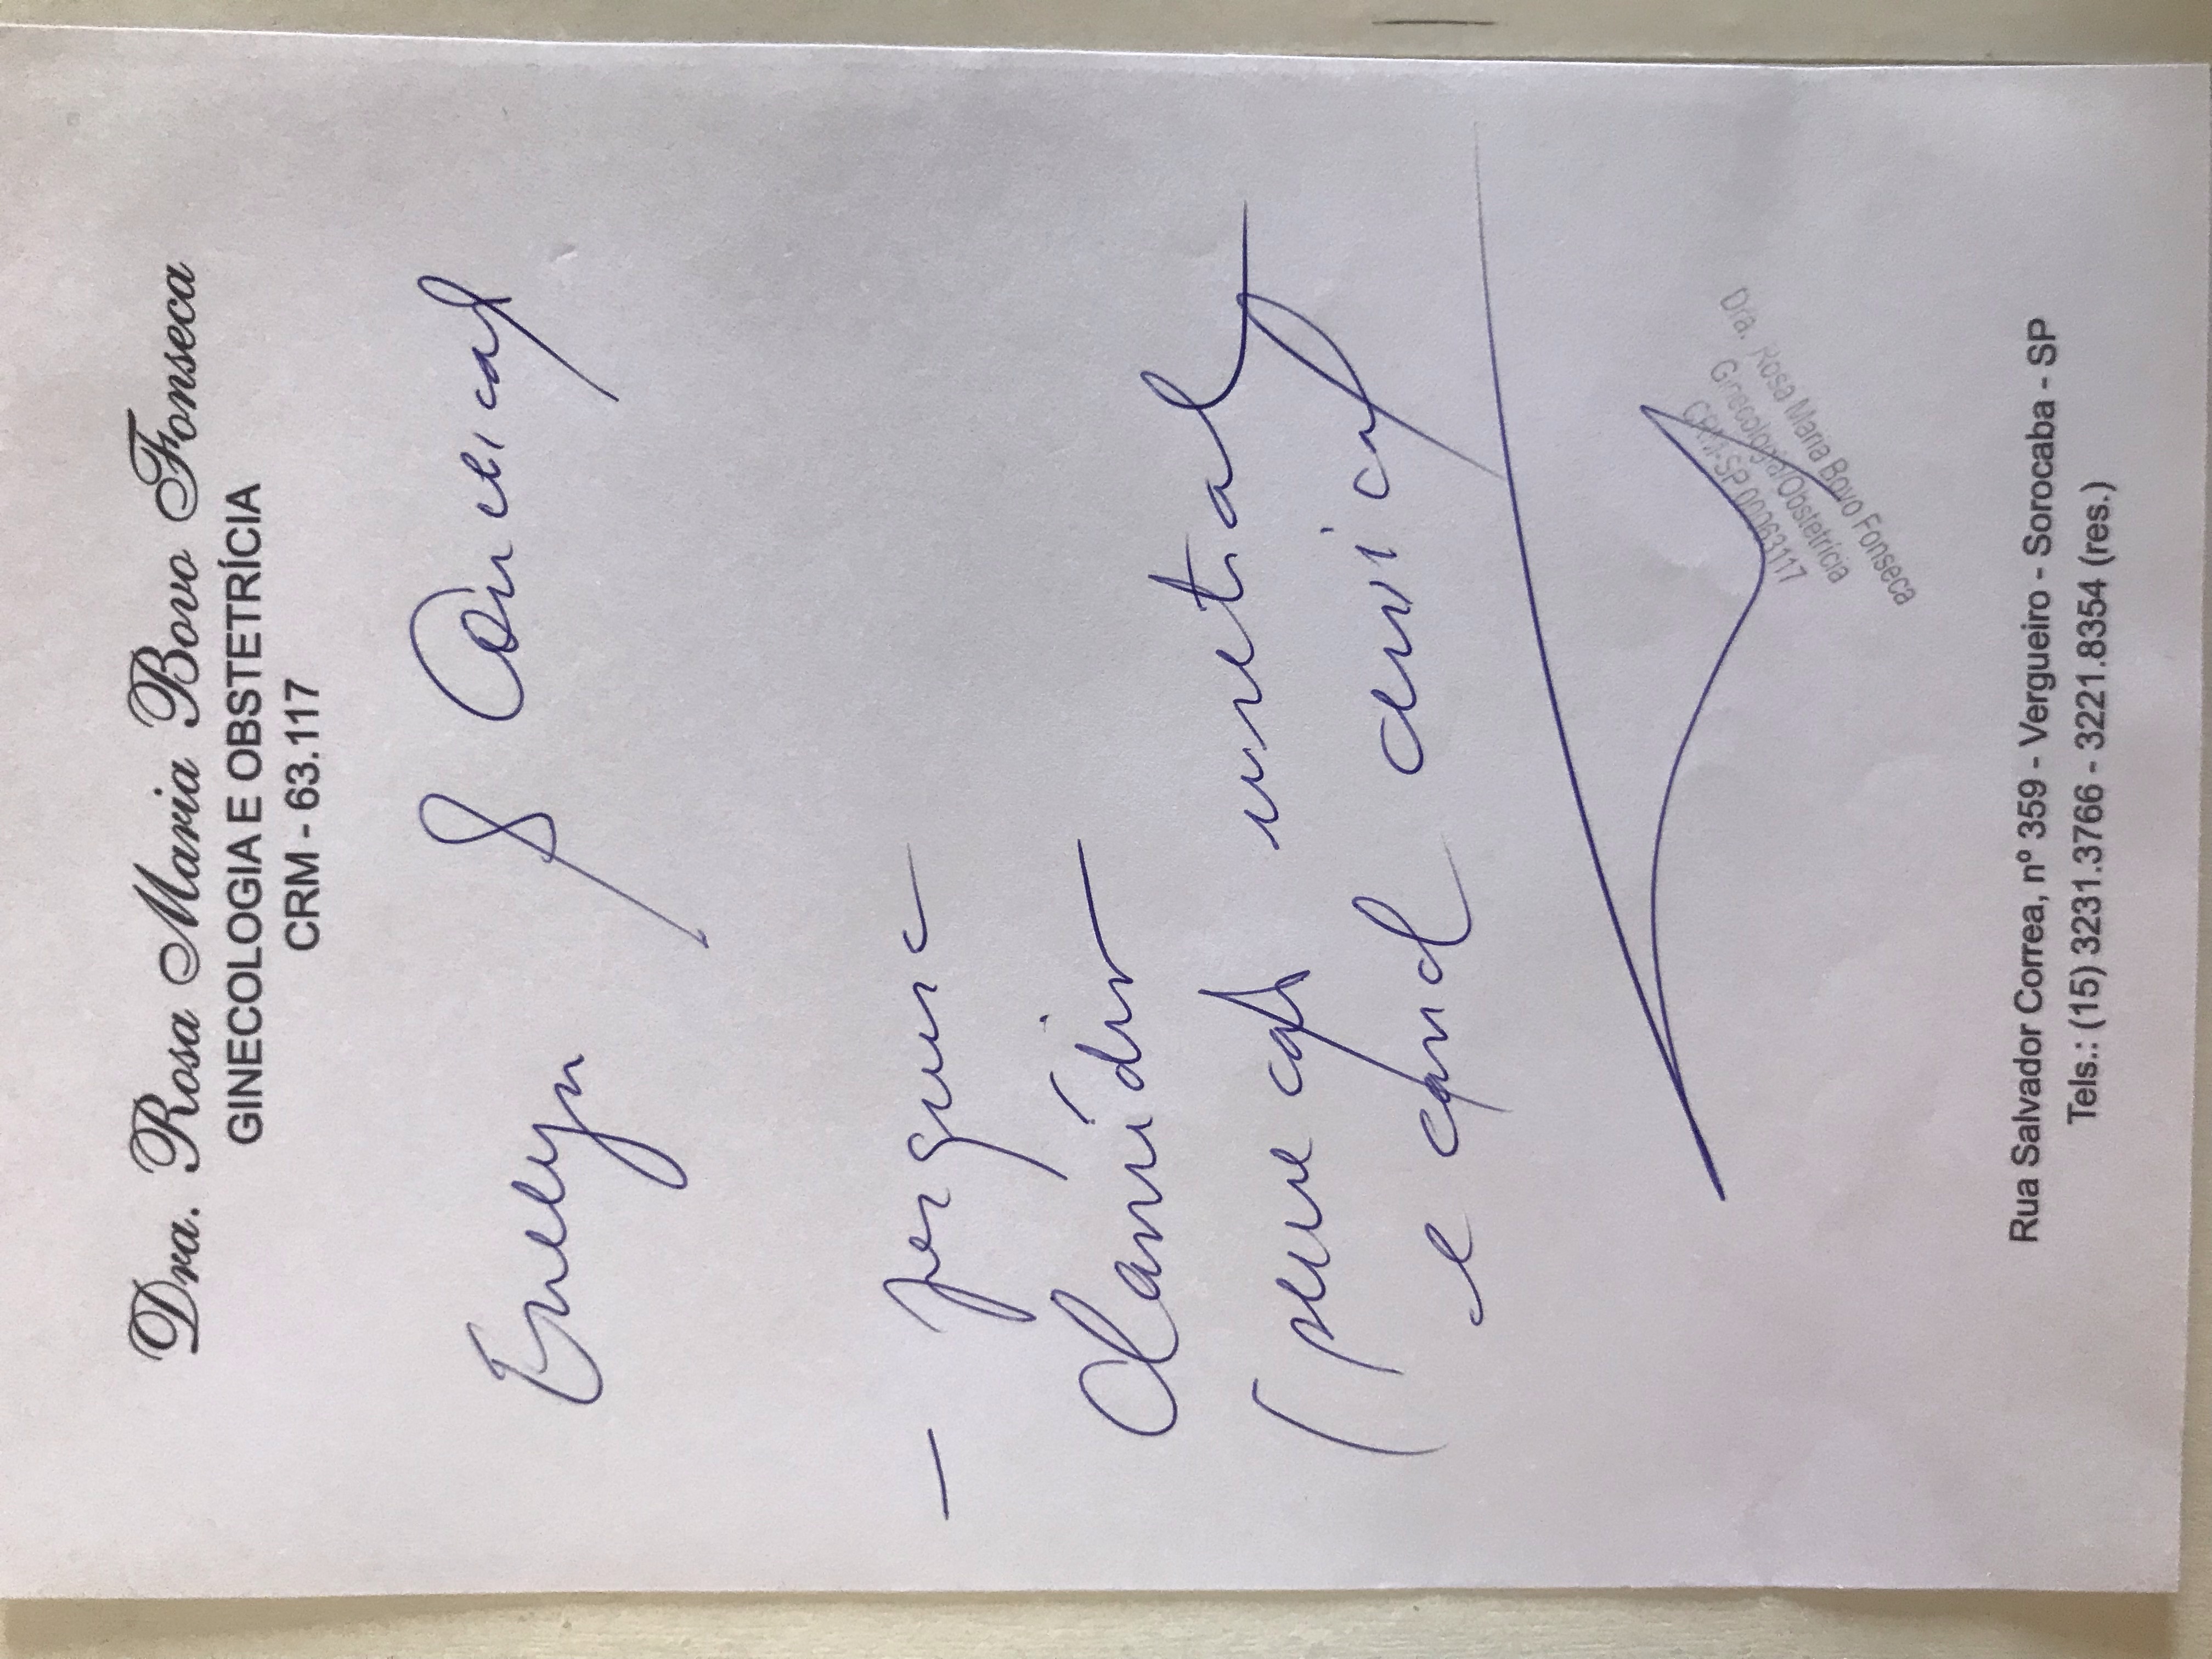 Dra. Rosa Maria Bovo Fonseca
GINECOLOGIA E OBSTETRÍCIA
CRM - 63.117
Evelyn S Conceição
- pesquisa
Clamídia
(secreção uretral
e canal cervical
Dra. Rosa Maria Bovo Fonseca
Ginecologia/Obstetrícia
CRM-SP 00063117
Rua Salvador Correa, nº 359 - Vergueiro - Sorocaba - SP
Tels.: (15) 3231.3766 - 3221.8354 (res.)